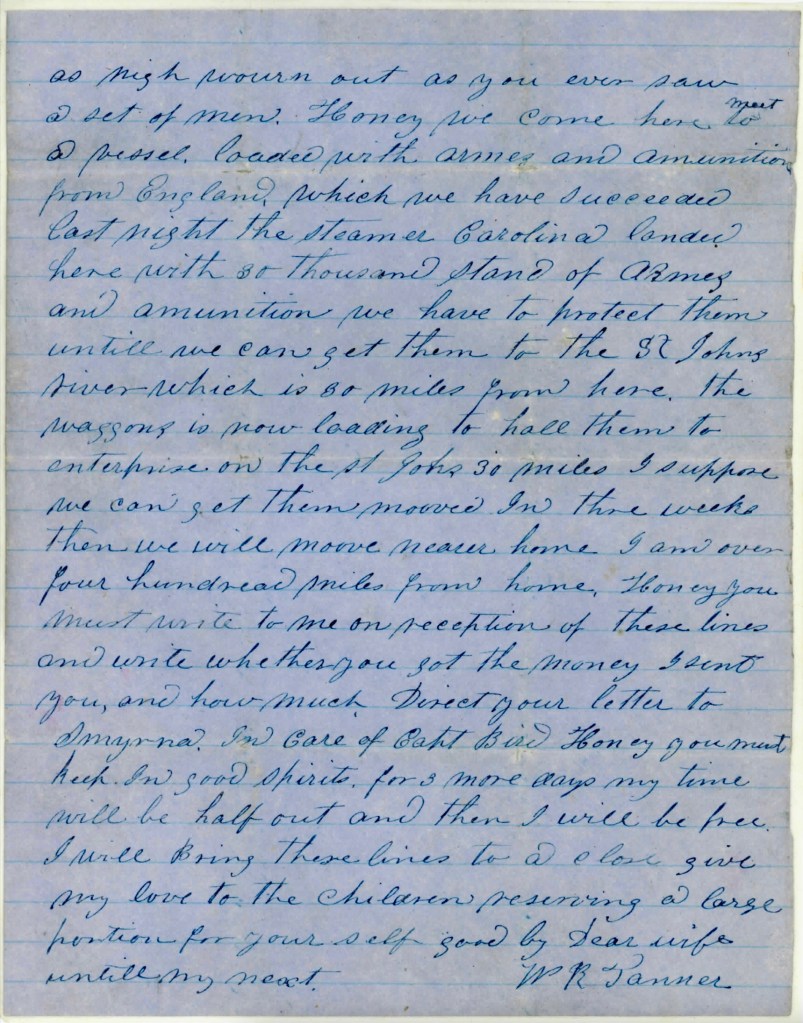 as nigh wourn out as you ever saw
a set of men. Honey we come here to meet
a vessel. loaded with armes and amunition
from England, which we have succeeded
Last night the steamer Carolina landed
here with 30 thousand stand of Armes
and amunition we have to protect them
untill we can get them to the St Johns
river which is 30 miles from here. the
waggons is now loading to hall them to
enterprise on the st Johs 30 miles I suppose
we can get them mooved In thre weeks
then we will moove nearer home I am over
four hundread miles from home. Honey you
must write to me on reception of these lines
and write whether you got the money I sent
you, and how much. Direct your letter to
Smyrna. In Care of Capt Bird Honey you must
keep In good spirits. for 3 more days my time
will be half out and then I will be free.
I will Bring these lines to a close give
my love to the children reserving a large
portion for your self good by Dear wife
untill my next. W R Tanner